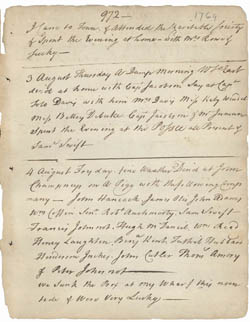 972 —
1769
I came to Town & Attended the Charitable Society
& Spent the Evening at home with Mrs Rowe &
Sucky —
3 August Thursday A Damp Morning Wd So East
dind at home with Capt Jackson Jay at Capt
Solo Davis with him Mrs Davis Miss Kitty
Miss Betty Capt Jackson & Mr Inman
Spent the Evening at the Posse Present &
Saml Swift
4 August Fryday fine Weather Dind at John
Champneys on A Pigg with the following Comp
any — John Hancock James Otis John Adams
Wm Coffin Senr Robt Auchmuty, Saml Swift
Francis Johonot, Hugh McDaniel Wm Reed
Henry Laughton Benj Kent
Henderson Inches, John Cutler Thos Amory
& Peter Johonot —
We Sunk the Box at my Wharf this
side & Were Very Lucky —